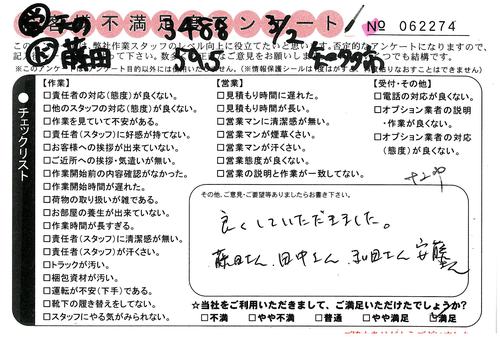 お客様不満足度アンケート
No 062274
3488 3/2
藤田 595
このアンケートは、弊社作業スタッフのレベル向上に役立てたいと思います。否定的なアンケートになりますので、
チェックリスト
【作業】
□責任者の対応(態度)が良くない。
□他のスタッフの対応(態度)が良くない。
□作業を見ていて不安がある。
□責任者(スタッフ)に好感が持てない。
□お客様への挨拶が出来ていない。
□ご近所への挨拶・気遣いが無い。
□作業開始前の内容確認がなかった。
□作業開始時間が遅れた。
□荷物の取り扱いが雑である。
□お部屋の養生が出来ていない。
□作業時間が長すぎる。
□責任者(スタッフ)に清潔感が無い。
□責任者(スタッフ)が汗くさい。
□トラックが汚い。
□梱包資材が汚い。
□運転が不安(下手)である。
□靴下の履き替えをしてない。
□スタッフにやる気がみられない。
【営業】
□見積もり時間に遅れた。
□見積もり時間が長い。
□営業マンに清潔感が無い。
□営業マンが煙草くさい。
□営業マンが汗くさい。
□営業態度が良くない。
□営業の説明と作業が一致してない。
【受付・その他】
□電話の対応が良くない。
□オプション業者の説明
・作業が良くない。
□オプション業者の対応
(態度)が良くない。
その他、ご意見・ご要望等ありましたらお書き下さい。
良くしていただきました。
藤田さん、田中さん、和田さん 安藤さん
☆当社をご利用いただきまして、ご満足いただけたでしょうか?
□不満 □やや不満 □普通 □やや満足 ☑満足